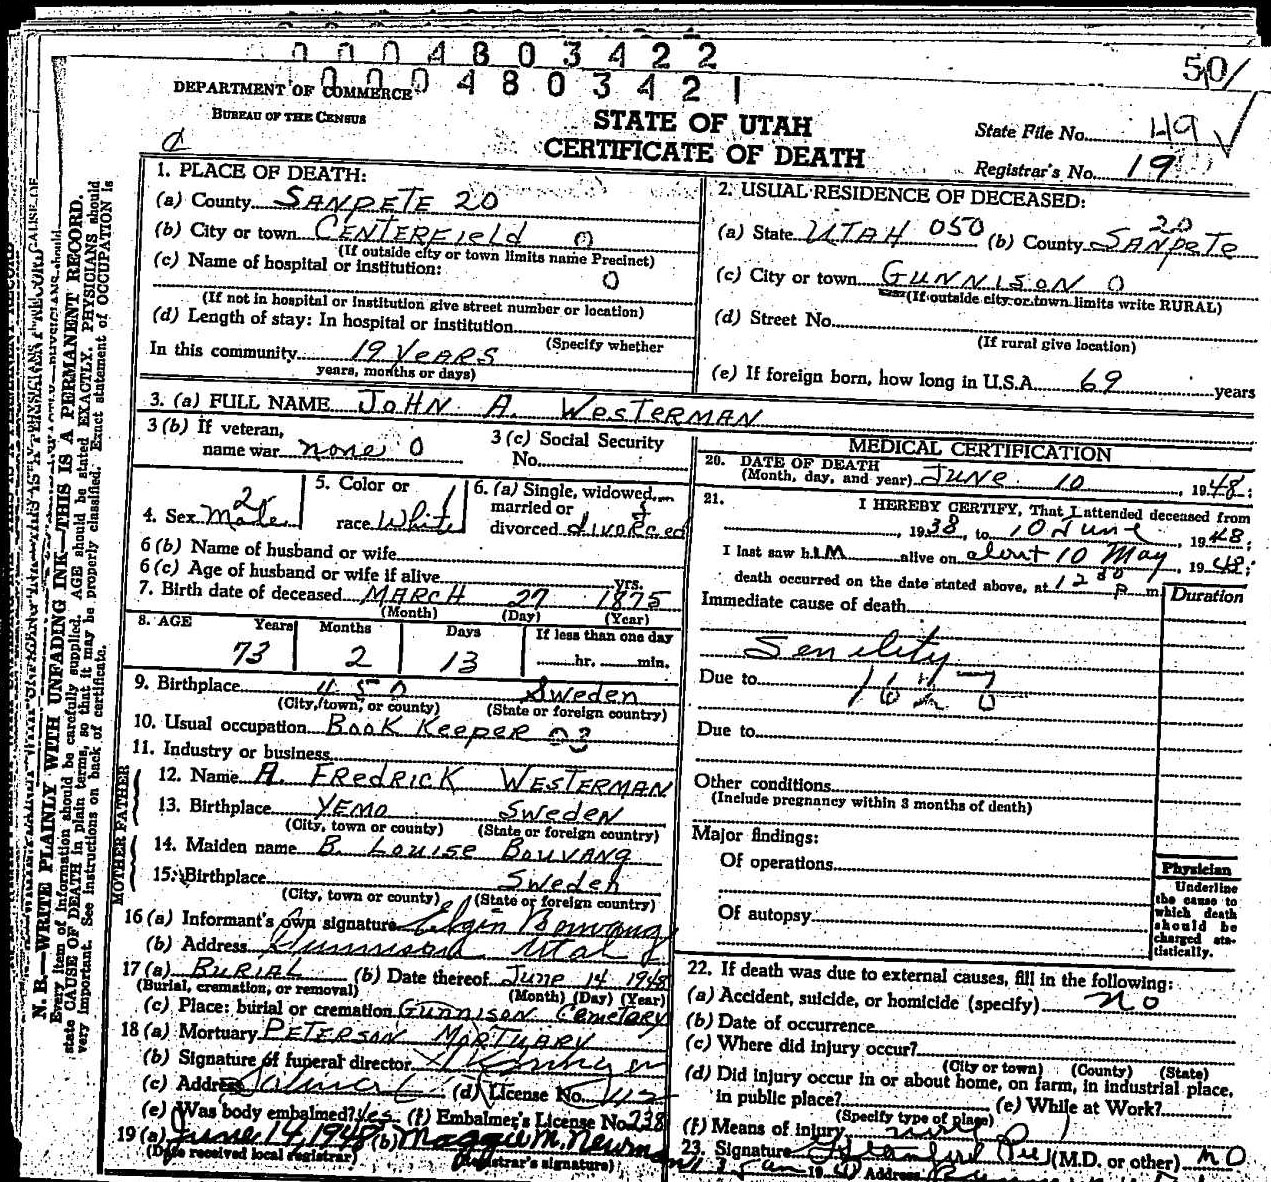 0 0 0 4 8 0 3 4 2 2
0 0 0 4 8 0 3 4 2 1
50/
DEPARTMENT OF COMMERCE
BUREAU OF THE CENSUS
STATE OF UTAH
CERTIFICATE OF DEATH
State File No. 49
Registrar's No. 19
1. PLACE OF DEATH:
(a) County SANPETE 20
(b) City or town CENTERFIELD 0
(If outside city or town limits name Precinct)
(c) Name of hospital or institution:
0
(If not in hospital or institution give street number or location)
(d) Length of stay: In hospital or institution
(Specify whether
In this community 19 YEARS
years, months or days)
2. USUAL RESIDENCE OF DECEASED:
(a) State UTAH 050 (b) County 20 SANPETE
(c) City or town GUNNISON 0
(If outside city or town limits write RURAL)
(d) Street No.
(If rural give location)
(e) If foreign born, how long in U.S.A. 69 years
3. (a) FULL NAME JOHN A. WESTERMAN
3 (b) If veteran, name war none 0
3 (c) Social Security No.
4. Sex Male 2
5. Color or race White 1
6. (a) Single, widowed, married or divorced divorced
6 (b) Name of husband or wife
6 (c) Age of husband or wife if alive yrs.
7. Birth date of deceased MARCH 27 1875
(Month) (Day) (Year)
8. AGE Years Months Days If less than one day
73 2 13 hr. min.
9. Birthplace 450 Sweden
(City, town, or county) (State or foreign country)
10. Usual occupation BOOK KEEPER 03
11. Industry or business
FATHER
12. Name A. FREDRICK WESTERMAN
13. Birthplace YEMO SWEDEN
(City, town or county) (State or foreign country)
MOTHER
14. Maiden name B. LOUISE BOUVANG
15. Birthplace SWEDEN
(City, town or county) (State or foreign country)
16 (a) Informant's own signature Elgin Bouvang
(b) Address Gunnison Utah
17 (a) BURIAL (b) Date thereof June 14 1948
(Burial, cremation, or removal) (Month) (Day) (Year)
(c) Place: burial or cremation GUNNISON CEMETARY
18 (a) Mortuary PETERSON MORTUARY
(b) Signature of funeral director
(c) Address (d) License No.
(e) Was body embalmed? yes (f) Embalmer's License No. 238
19 (a) June 14, 1948 (b) Maggie M. Newman
(Date received local registrar) (Registrar's signature)
MEDICAL CERTIFICATION
20. DATE OF DEATH
(Month, day, and year) JUNE 10, 1948;
21. I HEREBY CERTIFY, That I attended deceased from
, 1938, to 10 June, 1948;
I last saw him alive on about 10 May, 1948;
death occurred on the date stated above, at 12 30 p m
Duration
Immediate cause of death
Senility
Due to
Due to
Other conditions
(Include pregnancy within 3 months of death)
Major findings:
Of operations
Of autopsy
Physician
Underline the cause to which death should be charged statistically.
22. If death was due to external causes, fill in the following:
(a) Accident, suicide, or homicide (specify) no
(b) Date of occurrence
(c) Where did injury occur?
(City or town) (County) (State)
(d) Did injury occur in or about home, on farm, in industrial place,
in public place? (e) While at Work?
(Specify type of place)
(f) Means of injury
23. Signature (M.D. or other) MD
Address
N. B.—WRITE PLAINLY WITH UNFADING INK—THIS IS A PERMANENT RECORD.
Every item of information should be carefully supplied. AGE should be stated EXACTLY. PHYSICIANS should
state CAUSE OF DEATH in plain terms, so that it may be properly classified. Exact statement of OCCUPATION is
very important. See instructions on back of certificate.